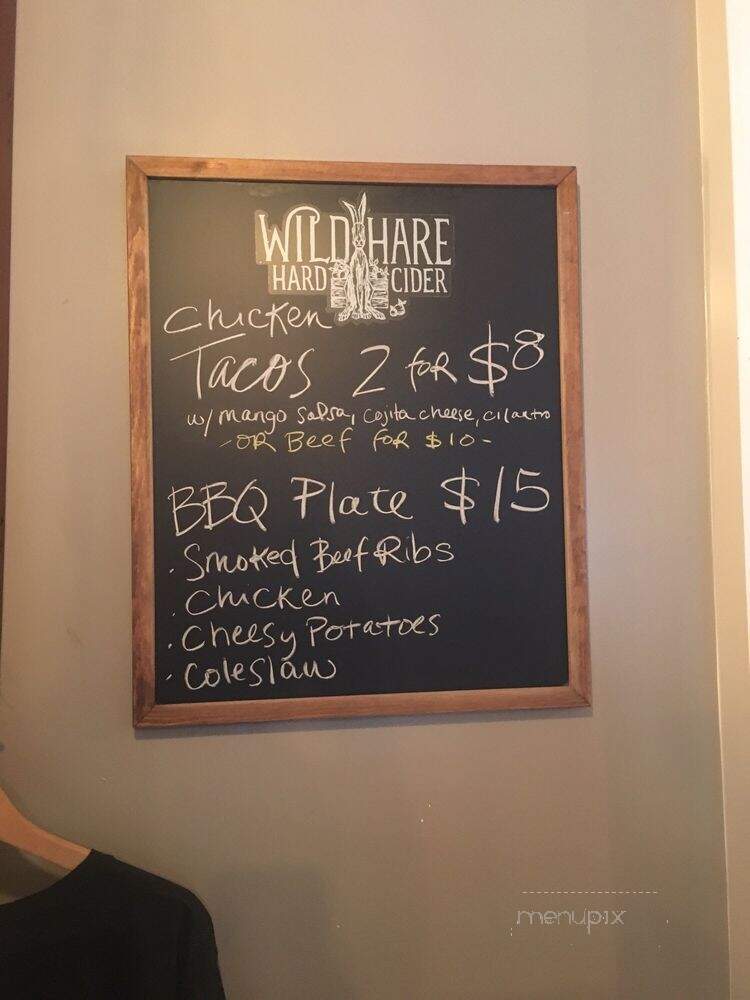 WILD HARE
HARD CIDER
Chicken
Tacos 2 for $8
w/ mango salsa, cojita cheese, cilantro
- OR Beef for $10 -
BBQ Plate $15
· Smoked Beef Ribs
· Chicken
· Cheesy Potatoes
· Coleslaw
menupix